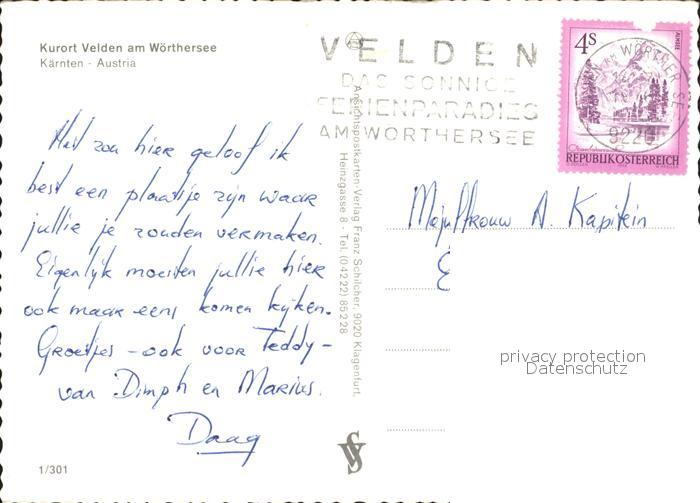 Kurort Velden am Wörthersee
Kärnten - Austria
VELDEN
DAS SONNIGE
FERIENPARADIES
AM WÖRTHERSEE
4s
ALMSEE
REPUBLIK ÖSTERREICH
AM WÖRTHER SEE
9220
Het zou hier geloof ik
best een plaatsje zijn waar
jullie je zouden vermaken.
Eigenlijk moesten jullie hier
ook maar eens komen kijken.
Groetjes - ook voor Teddy -
van Dimph en Marius.
Daag
Ansichtspostkarten-Verlag Franz Schilcher, 9020 Klagenfurt,
Heinzgasse 8 - Tel. (04222) 85228
Mejuffrouw A. Kapitein
privacy protection
Datenschutz
1/301